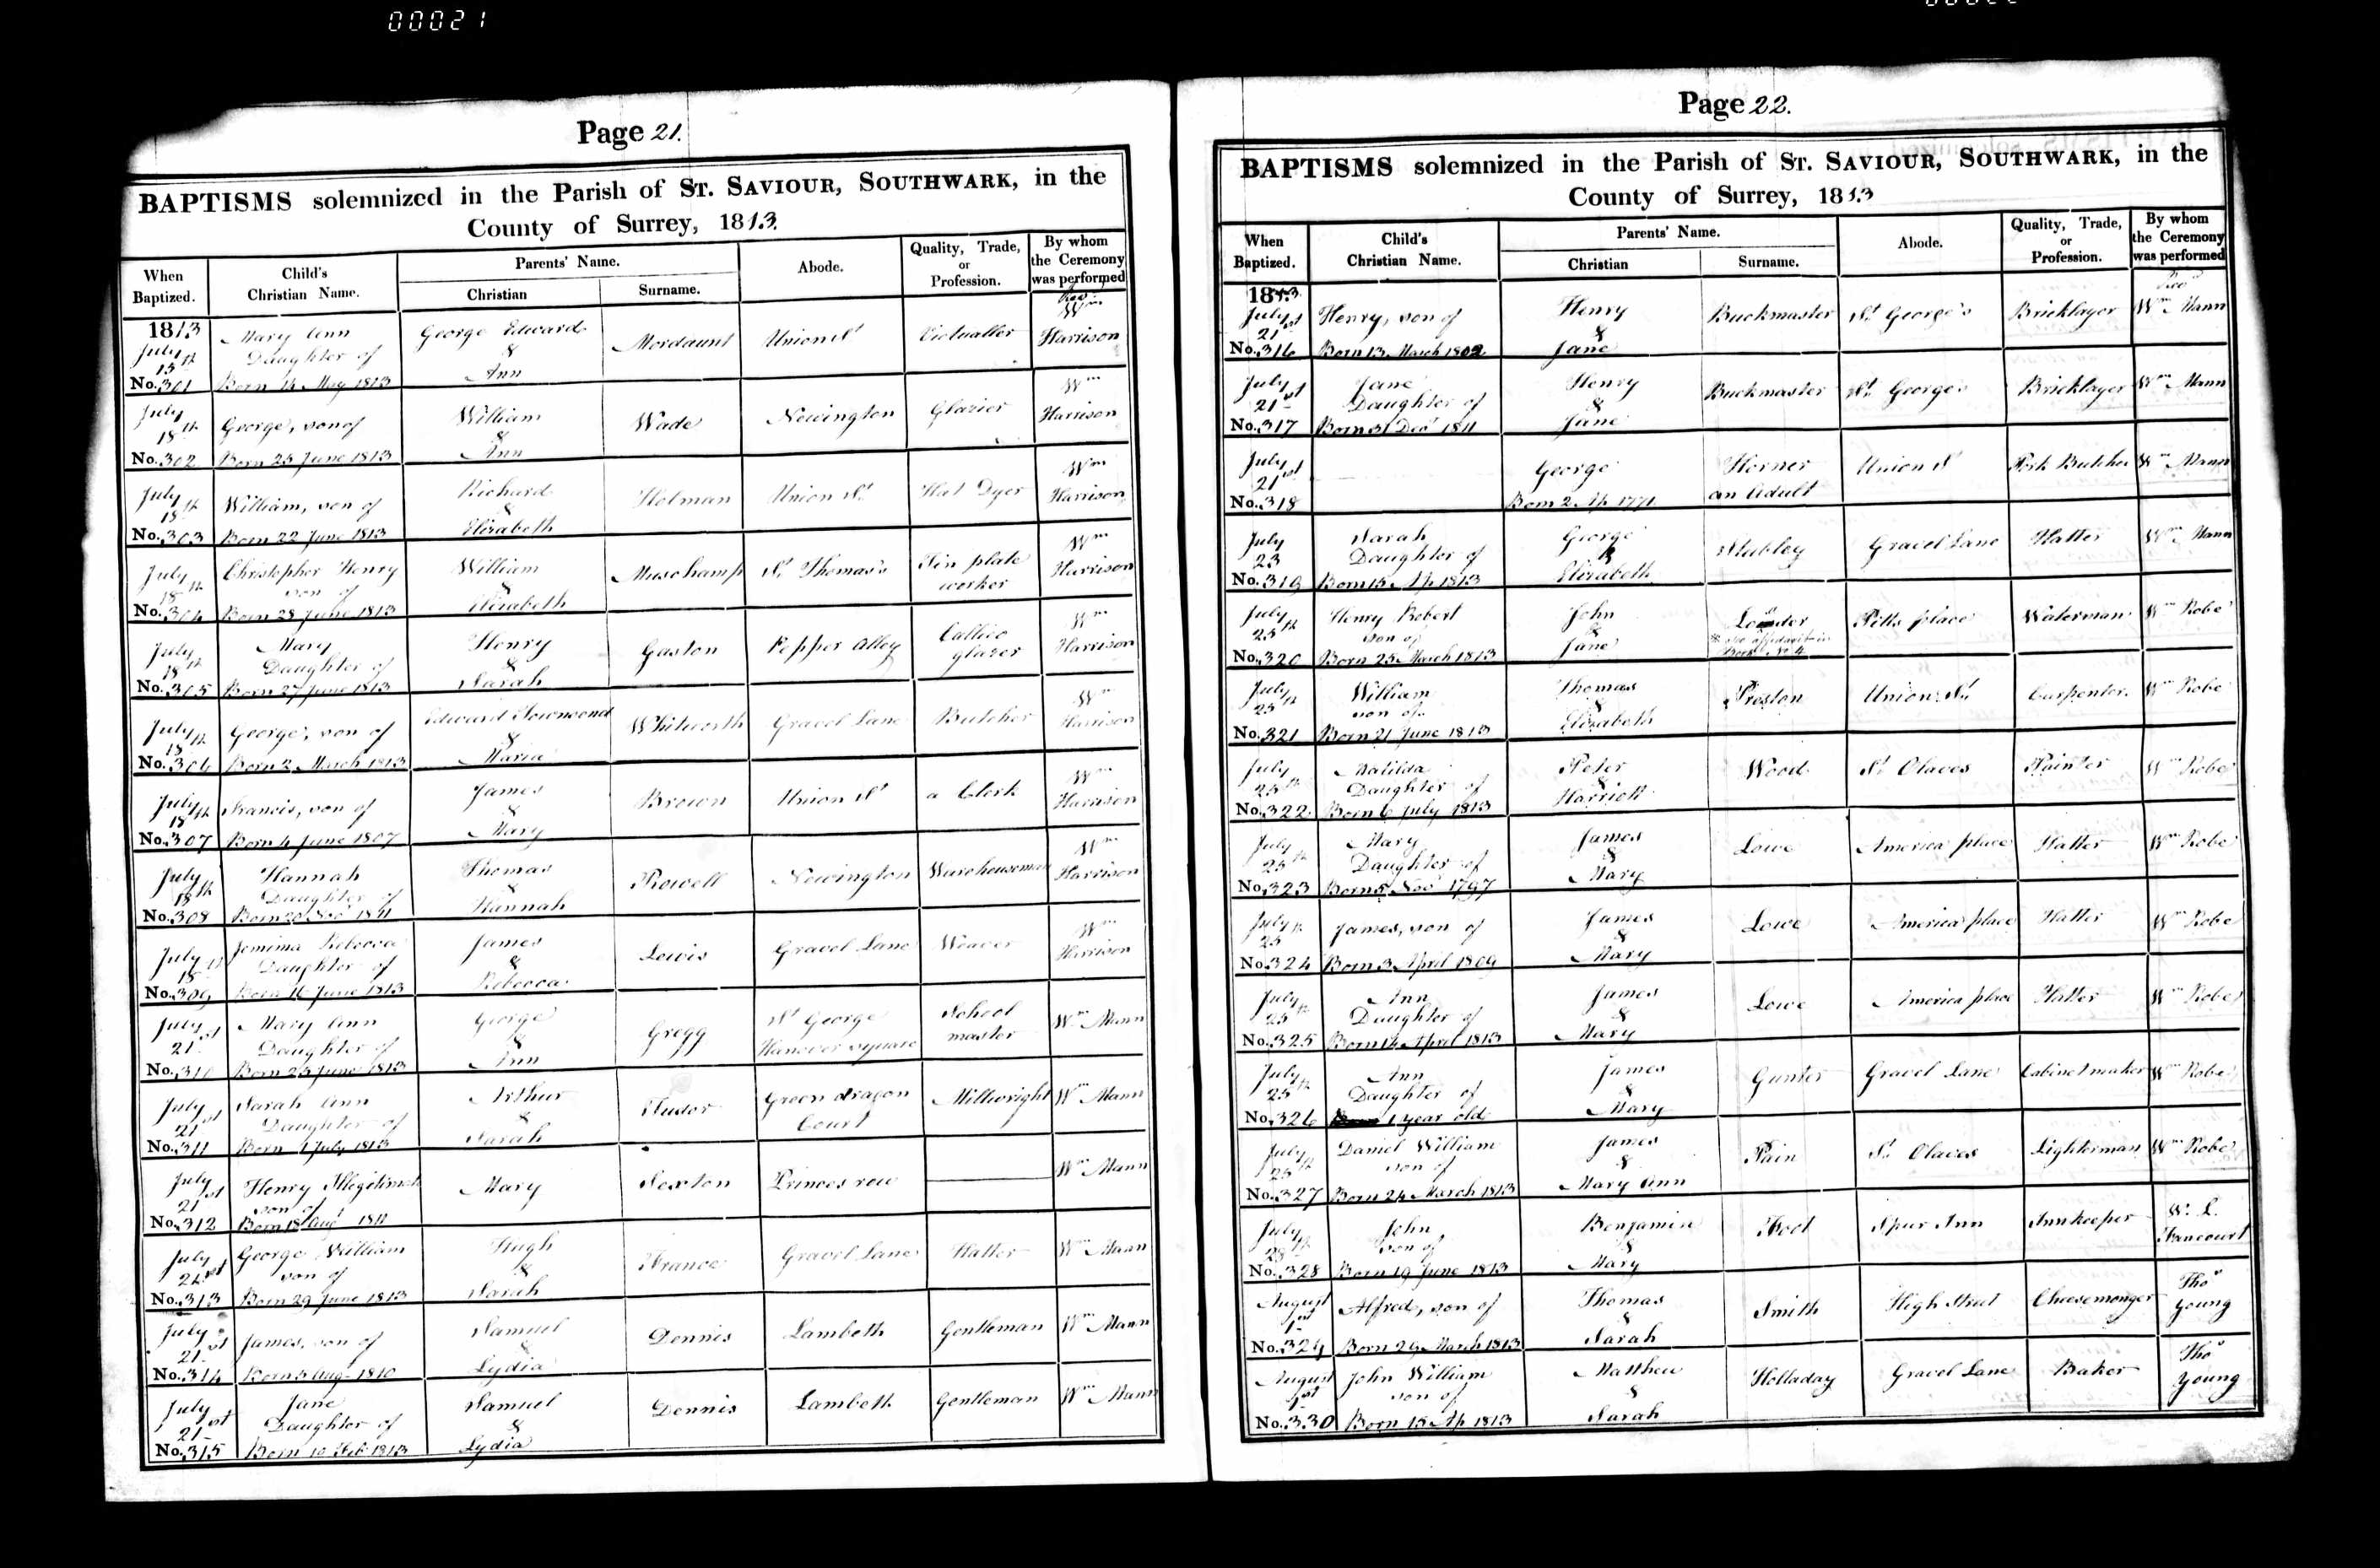 00021
Page 21.
BAPTISMS solemnized in the Parish of ST. SAVIOUR, SOUTHWARK, in the
County of Surrey, 1813.
When Baptized.
Child's Christian Name.
Parents' Name.
Christian
Surname.
Abode.
Quality, Trade, or Profession.
By whom the Ceremony was performed
1813 July 15th No. 301 Mary Ann Daughter of Born 14 May 1813 George Edward & Ann Mordaunt Union St Victualler Revd Wm Harrison
July 18th No. 302 George, son of Born 25 June 1813 William & Ann Wade Newington Glazier Wm Harrison
July 18th No. 303 William, son of Born 22 June 1813 Richard & Elizabeth Holman Union St Hat Dyer Wm Harrison
July 18th No. 304 Christopher Henry son of Born 28 June 1813 William & Elizabeth Muschamp St Thomas's Tin plate worker Wm Harrison
July 18th No. 305 Mary Daughter of Born 27 June 1813 Henry & Sarah Gaston Pepper Alley Callico glazer Wm Harrison
July 18th No. 306 George, son of Born 2 March 1813 Edward Townsend & Maria Whitworth Gravel Lane Butcher Wm Harrison
July 18th No. 307 Francis, son of Born 4 June 1807 James & Mary Brown Union St a Clerk Wm Harrison
July 18th No. 308 Hannah Daughter of Born 20 Novr 1811 Thomas & Hannah Rowell Newington Warehouseman Wm Harrison
July 18th No. 309 Jemima Rebecca Daughter of Born 16 June 1813 James & Rebecca Lewis Gravel Lane Weaver Wm Harrison
July 21st No. 310 Mary Ann Daughter of Born 25 June 1813 George & Ann Gregg St George Hanover square School master Wm Mann
July 21st No. 311 Sarah Ann Daughter of Born 1 July 1813 Arthur & Sarah Tudor Green dragon Court Millwright Wm Mann
July 21st No. 312 Henry Illegitimate son of Born 18 Augt 1811 Mary Sexton Princes row Wm Mann
July 21st No. 313 George William son of Born 29 June 1813 Hugh & Sarah France Gravel Lane Hatter Wm Mann
July 21st No. 314 James, son of Born 5 Augt 1810 Samuel & Lydia Dennis Lambeth Gentleman Wm Mann
July 21st No. 315 Jane Daughter of Born 10 Feb 1813 Samuel & Lydia Dennis Lambeth Gentleman Wm Mann
Page 22.
BAPTISMS solemnized in the Parish of ST. SAVIOUR, SOUTHWARK, in the
County of Surrey, 1813
When Baptized.
Child's Christian Name.
Parents' Name.
Christian
Surname.
Abode.
Quality, Trade, or Profession.
By whom the Ceremony was performed
1813 July 21st No. 316 Henry, son of Born 13 March 1802 Henry & Jane Buckmaster St George's Bricklayer Revd Wm Mann
July 21st No. 317 Jane Daughter of Born 31 Decr 1811 Henry & Jane Buckmaster St George's Bricklayer Wm Mann
July 21st No. 318 George Born 2 Ap 1771 Horner an Adult Union St Pork Butcher Wm Mann
July 23 No. 319 Sarah Daughter of Born 15 Ap 1813 George & Elizabeth Stubley Gravel Lane Hatter Wm Mann
July 25th No. 320 Henry Robert son of Born 25 March 1813 John & Jane see affidavit in Book No 4 Pitts place Waterman Wm Robe
July 25th No. 321 William son of Born 21 June 1813 Thomas & Elizabeth Preston Union St Carpenter Wm Robe
July 25th No. 322 Matilda Daughter of Born 6 July 1813 Peter & Harriott Wood St Olaves Painter Wm Robe
July 25th No. 323 Mary Daughter of Born 5 Novr 1797 James & Mary Lowe America place Hatter Wm Robe
July 25th No. 324 James, son of Born 3 April 1809 James & Mary Lowe America place Hatter Wm Robe
July 25th No. 325 Ann Daughter of Born 14 April 1813 James & Mary Lowe America place Hatter Wm Robe
July 25th No. 326 Ann Daughter of 1 year old James & Mary Gunter Gravel Lane Cabinet maker Wm Robe
July 25th No. 327 Daniel William son of Born 24 March 1813 James & Mary Ann Pain St Olaves Lighterman Wm Robe
July 28th No. 328 John son of Born 19 June 1813 Benjamin & Mary Foot Spur Inn Innkeeper W. L. Fancourt
August 1st No. 329 Alfred, son of Born 29 March 1813 Thomas & Sarah Smith High Street Cheesemonger Thos Young
August 1st No. 330 John William son of Born 15 Ap 1813 Matthew & Sarah Holladay Gravel Lane Baker Thos Young